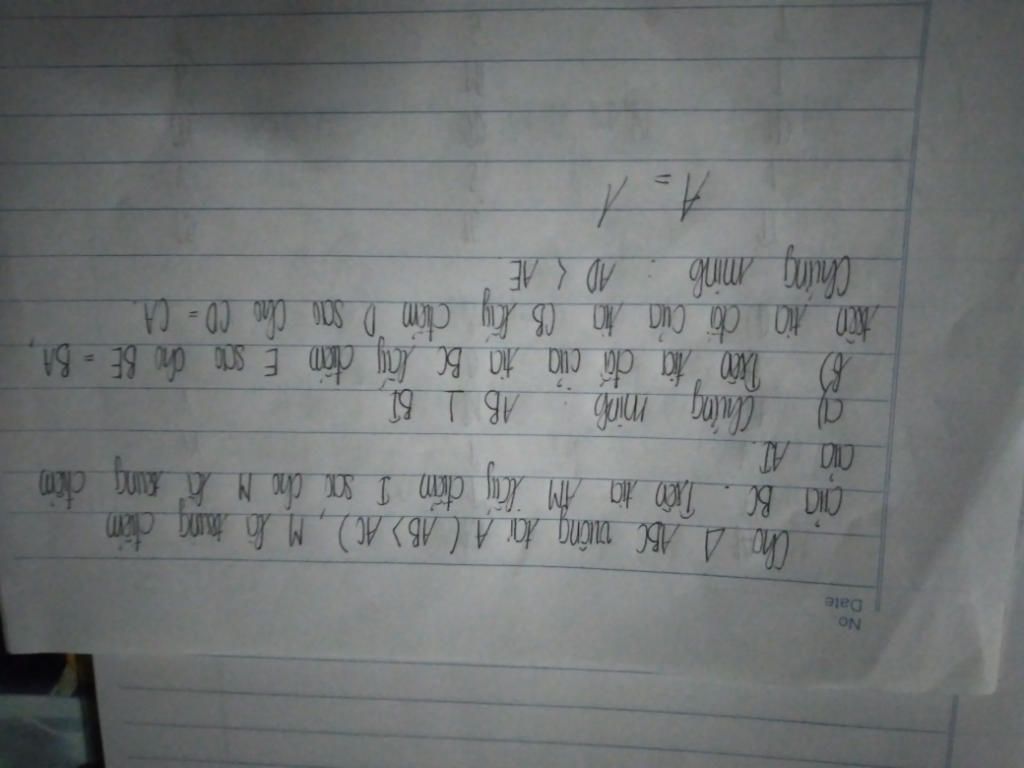 No.
Date
Cho Δ ABC vuông tại A (AB > AC), M là trung điểm
của BC. Trên tia AM lấy điểm I sao cho M là trung điểm
của AI.
a) Chứng minh : AB ⊥ BI
B) Trên tia đối của tia BC lấy điểm E sao cho BE = BA,
trên tia đối của tia CB lấy điểm D sao cho CD = CA.
Chứng minh : AD < AE.
A = 1